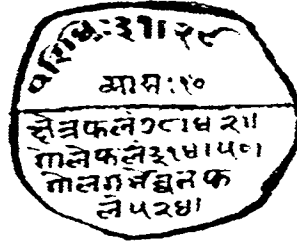 परिधिः३१।२८
व्यासः१०
क्षेत्रफलं७८।४२॥
गोलेफलं३१४।५०।
गोलगर्भेघनफ
लं५२४।